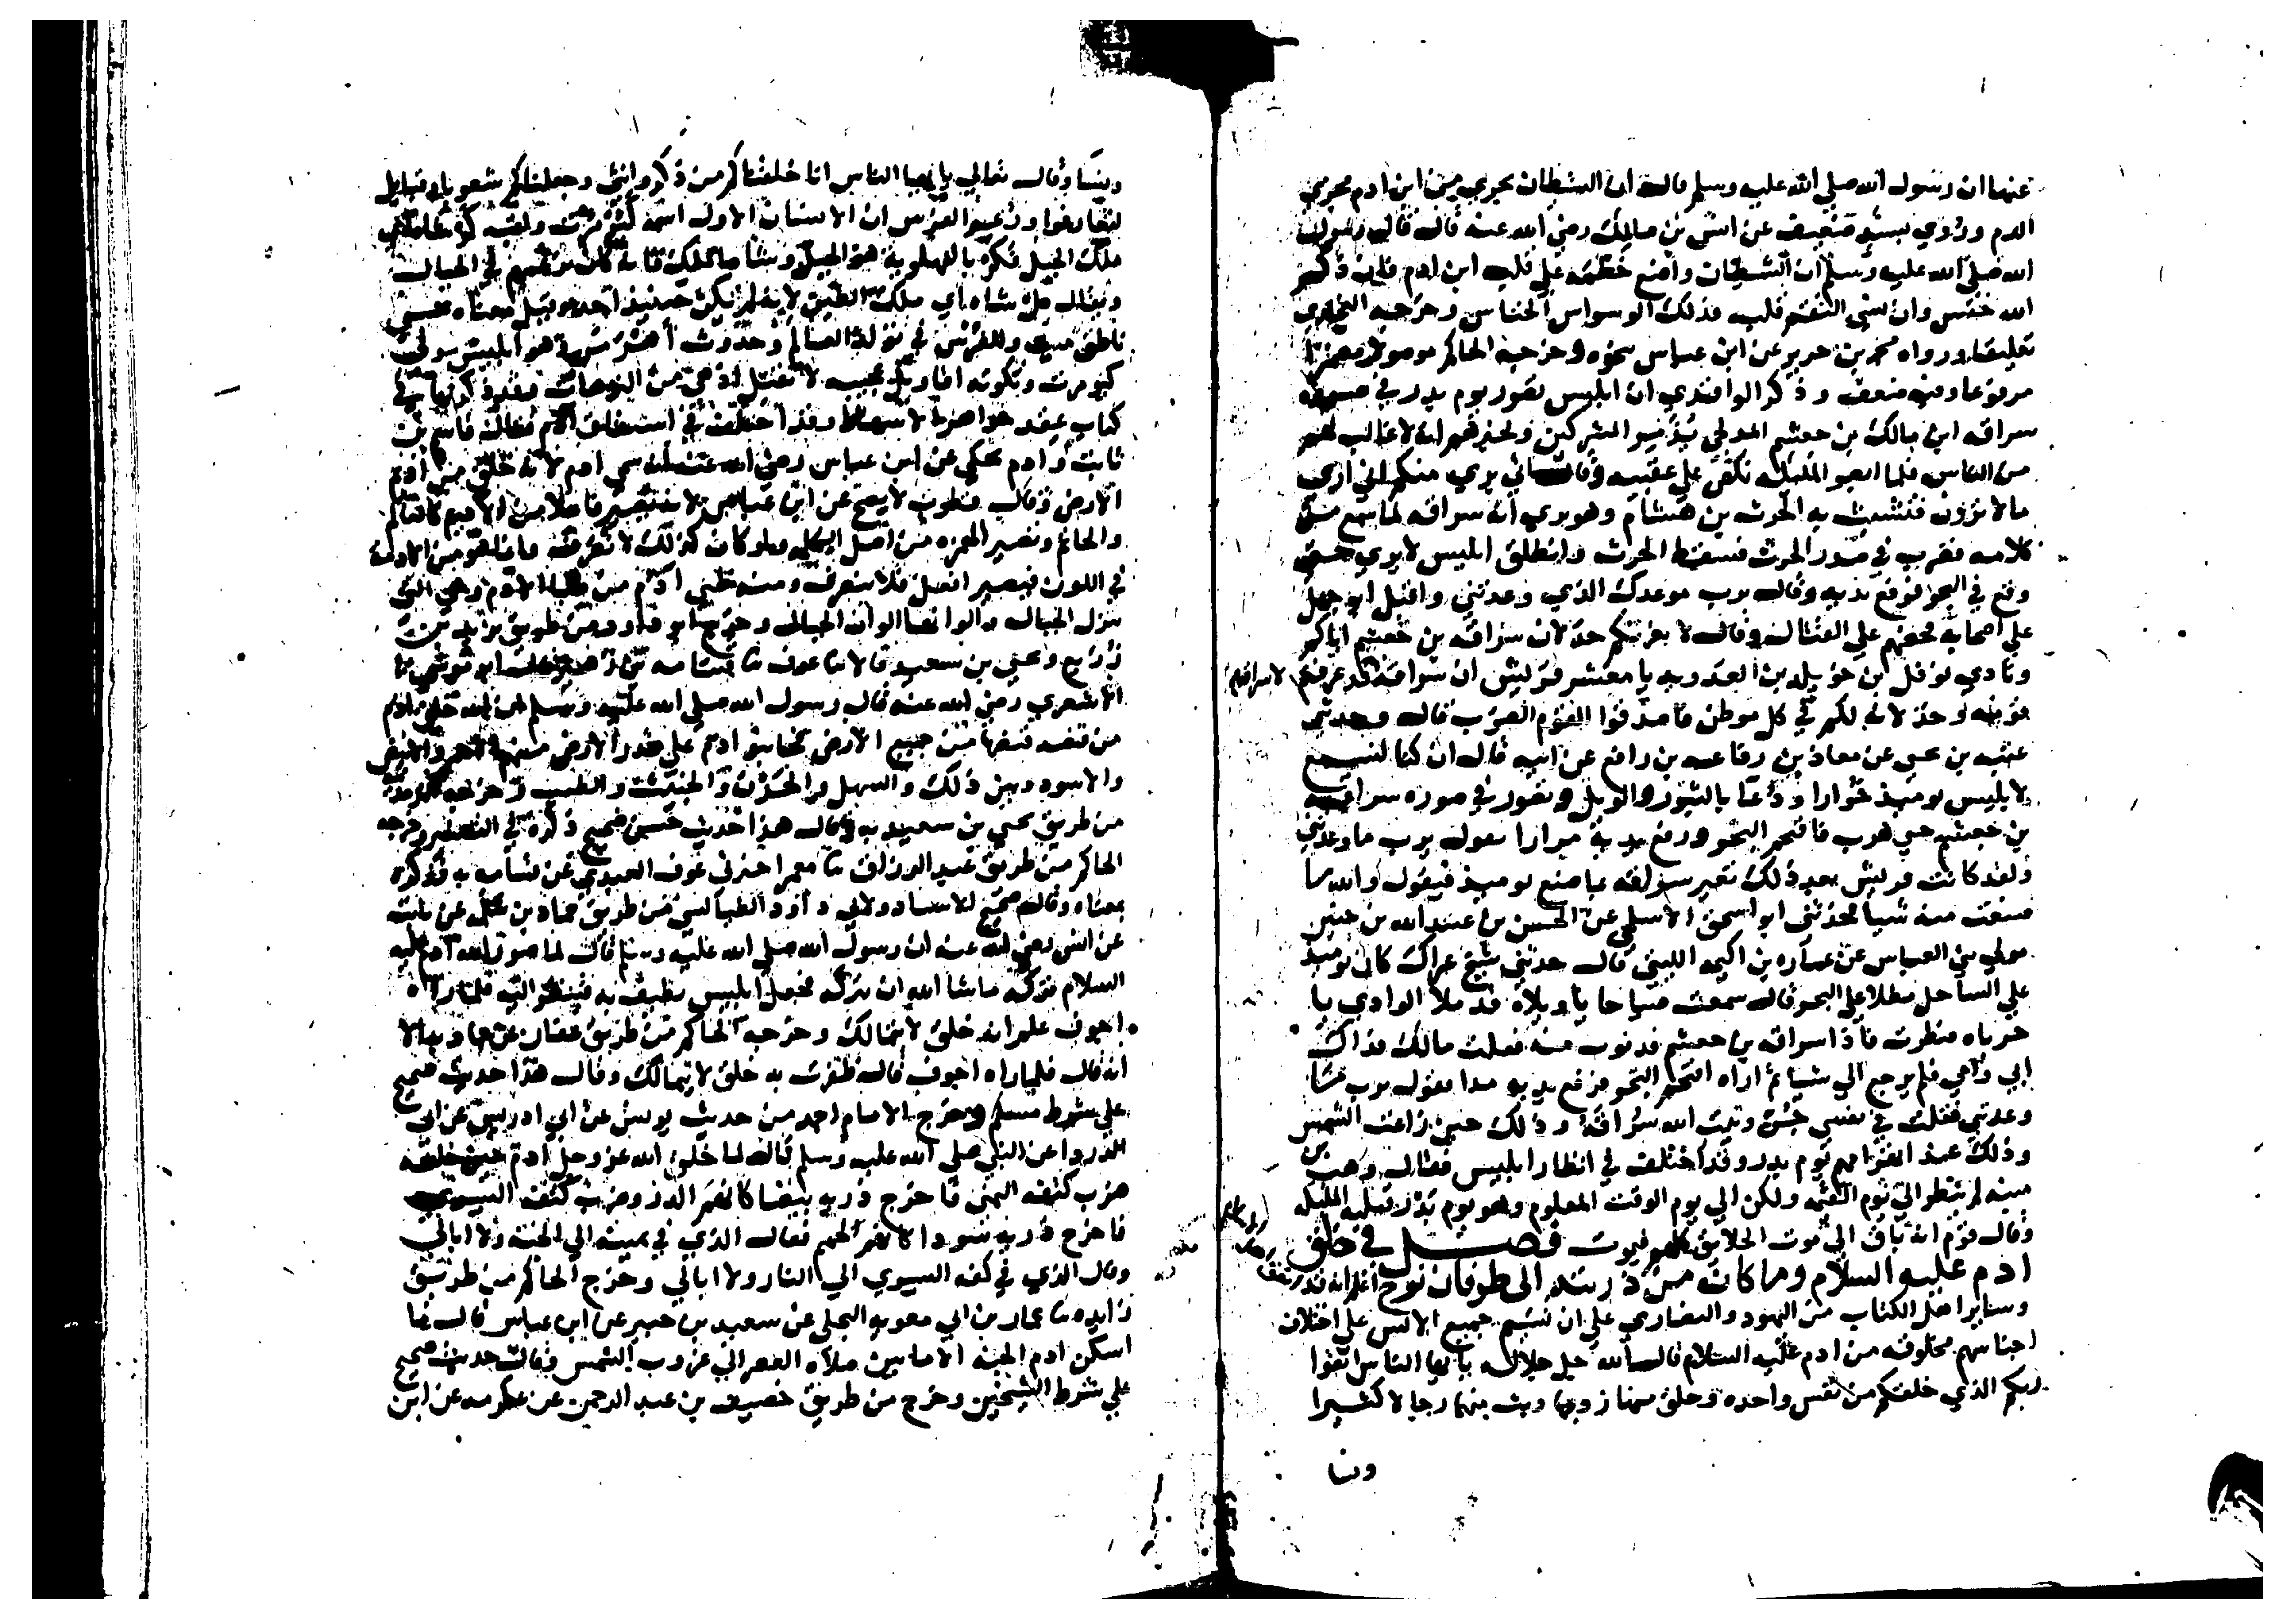 عنهما ان رسول الله صلى الله عليه وسلم قال ان الشيطان يجري من ابن ادم مجرى
الدم وروي بسند ضعيف عن انس بن مالك رضي الله عنه قال قال رسول
الله صلى الله عليه وسلم ان الشيطان واضع خطمه على قلب ابن ادم فان ذكر
الله خنس وان نسي التقم قلبه فذلك الوسواس الخناس وخرجه البخاري
تعليقا ورواه محمد بن جرير عن ابن عباس نحوه وخرجه الحاكم موصولا
مرفوعا وفيه ضعف وذكر الواقدي ان ابليس تصور يوم بدر في صورة
سراقه ابن مالك بن جعشم المدلجي يذمر المشركين ويخبرهم انه لا غالب لهم
من الناس فلما ابصر المليكه نكص على عقبيه وقال اني بري منكم اني ارى
ما لا ترون فتشبث به الحرث بن هشام وهو يرى انه سراقه لما سمع من
كلامه فضرب في صدر الحرث فسقط الحرث وانطلق ابليس لا يرى حتى
وقع في البحر فرفع يديه وقال يرب موعدك الذي وعدتني واقبل ابو جهل
على اصحابه فحضهم على القتال وقال لا يغرنكم خذلان سراقه بن جعشم اياكم
ونادى نوفل ابن خويلد بن العدويه يا معشر قريش ان سراقه قد عرفتم
قومه وخذلانه لكم في كل موطن فاصدقوا القوم الضرب قال وحدثني
عتبه بن يحيى عن معاذ بن رفاعه بن رافع عن ابيه قال ان كنا لنسمع
لابليس يوميذ خوارا ودعا بالثبور والويل وتصور في صوره سراقه
بن جعشم حتى هرب فاقتحم البحر ورفع يديه مرارا يقول يرب ما وعدتني
ولقد كانت قريش بعد ذلك تعير سراقه بما صنع يوميذ فيقول والله ما
صنعت منه شيا فحدثني ابو اسحق الاسلمي عن الحسن بن عبيد الله بن حنين
مولى بني العباس عن عماره بن اكيمه الليثي قال حدثني شيخ عراك كان يوميذ
على الساحل مطلا على البحر قال سمعت صياحا يا ويلاه قد ملا الوادي يا
حرباه فنظرت فاذا سراقه بن جعشم فدنوت منه فقلت مالك فداك
ابي وامي فلم يرجع الي شيا ثم اراه اقتحم البحر فرفع يديه مدا يقول يرب ما
وعدتني فقلت في نفسي جن وبيت الله سراقه وذلك حين زاغت الشمس
وذلك عند انهزامهم يوم بدر وقد اختلف في انظار ابليس فقال وهب بن
منبه لم ينظر الى يوم القيمه ولكن الى يوم الوقت المعلوم وهو يوم بدر قتلته المليكه
وقال قوم انه باق الى موت الخلايق كلهم فيموت فصل في خلق
ادم عليه السلام وما كان من ذريته الى طوفان نوح اعلم انه قد
وسايرا هل الكتاب من اليهود والنصارى على ان نسم جميع الانس على اختلاف
اجناسهم مخلوقه من ادم عليه السلام قال الله جل جلاله يا ايها الناس اتقوا
ربكم الذي خلقكم من نفس واحده وخلق منها زوجها وبث منهما رجالا كثيرا
ونسا
ونسا وقال تعالى يا ايها الناس انا خلقناكم من ذكر وانثى وجعلناكم شعوبا وقبايل
لتعارفوا وزعم الفرس ان الانسان الاول اسمه كيومرت ولقبه
ملك الجبل
ويقال كل شاه اي ملك الطين لانه لم يكن حينيذ احد وقيل معناه حي
ناطق ميت وللفرس في تولد العالم وحدوث اهرمن هو ابليس
كيومرت وتكونه اقاويل عجيبه
كتاب عقد جواهر الاسفاط وقد اختلف في اشتقاق ادم فقال قاسم بن
ثابت وادم يحكى عن ابن عباس رضي الله عنه انه سمي ادم لانه خلق من اديم
الارض وقال قطرب لا يصح عن ابن عباس
في اللون فيصير افعل فلا ينصرف ومنه ظبي ادم من ظبا الادم وهي التي
تنزل الجبال والوانها الوان الجبال وخرج ابو داود من طريق يزيد بن
زريع ويحيى بن سعيد قالا نا عوف نا قسامه بن زهير نا ابو موسى
الاشعري رضي الله عنه قال رسول الله صلى الله عليه وسلم ان الله خلق ادم
من قبضه قبضها من جميع الارض فجا بنو ادم على قدر الارض منهم الاحمر والابيض
والاسود وبين ذلك والسهل والحزن والخبيث والطيب وخرجه الترمذي
من طريق يحيى بن سعيد به وقال هذا حديث حسن صحيح ذكره في التفسير وخرجه
الحاكم من طريق عبد الرزاق نا معمر اخبرني عوف العبدي عن قسامه به فذكره
بمعناه وقال صحيح الاسناد ولابي داود الطيالسي من طريق حماد بن سلمه عن ثابت
عن انس رضي الله عنه ان رسول الله صلى الله عليه وسلم قال لما صور الله ادم عليه
السلام تركه ما شا الله ان يتركه فجعل ابليس يطيف به فينظر اليه فلما راه
اجوف علم انه خلق لا يتمالك وخرجه الحاكم من طريق عفان عن حماد به الا
انه قال فلما راه اجوف قال ظفرت به خلق لا يتمالك وقال هذا حديث صحيح
على شرط مسلم وخرج الامام احمد من حديث يونس عن ابي ادريس عن ابي
الدرداء عن النبي صلى الله عليه وسلم قال لما خلق الله عز وجل ادم حين خلقه
ضرب كتفه اليمنى فاخرج ذريه بيضا كانهم الذر وضرب كتفه اليسرى
فاخرج ذريه سودا كانهم الحمم فقال الذي في يمينه الى الجنه ولا ابالي
وقال الذي في كفه اليسرى الى النار ولا ابالي وخرج الحاكم من طريق
زايده نا عمار بن ابي معويه البجلي عن سعيد بن جبير عن ابن عباس قال ما
اسكن ادم الجنه الا ما بين صلاه العصر الى غروب الشمس وقال حديث صحيح
على شرط الشيخين وخرج من طريق خصيف بن عبد الرحمن عن عكرمه عن ابن